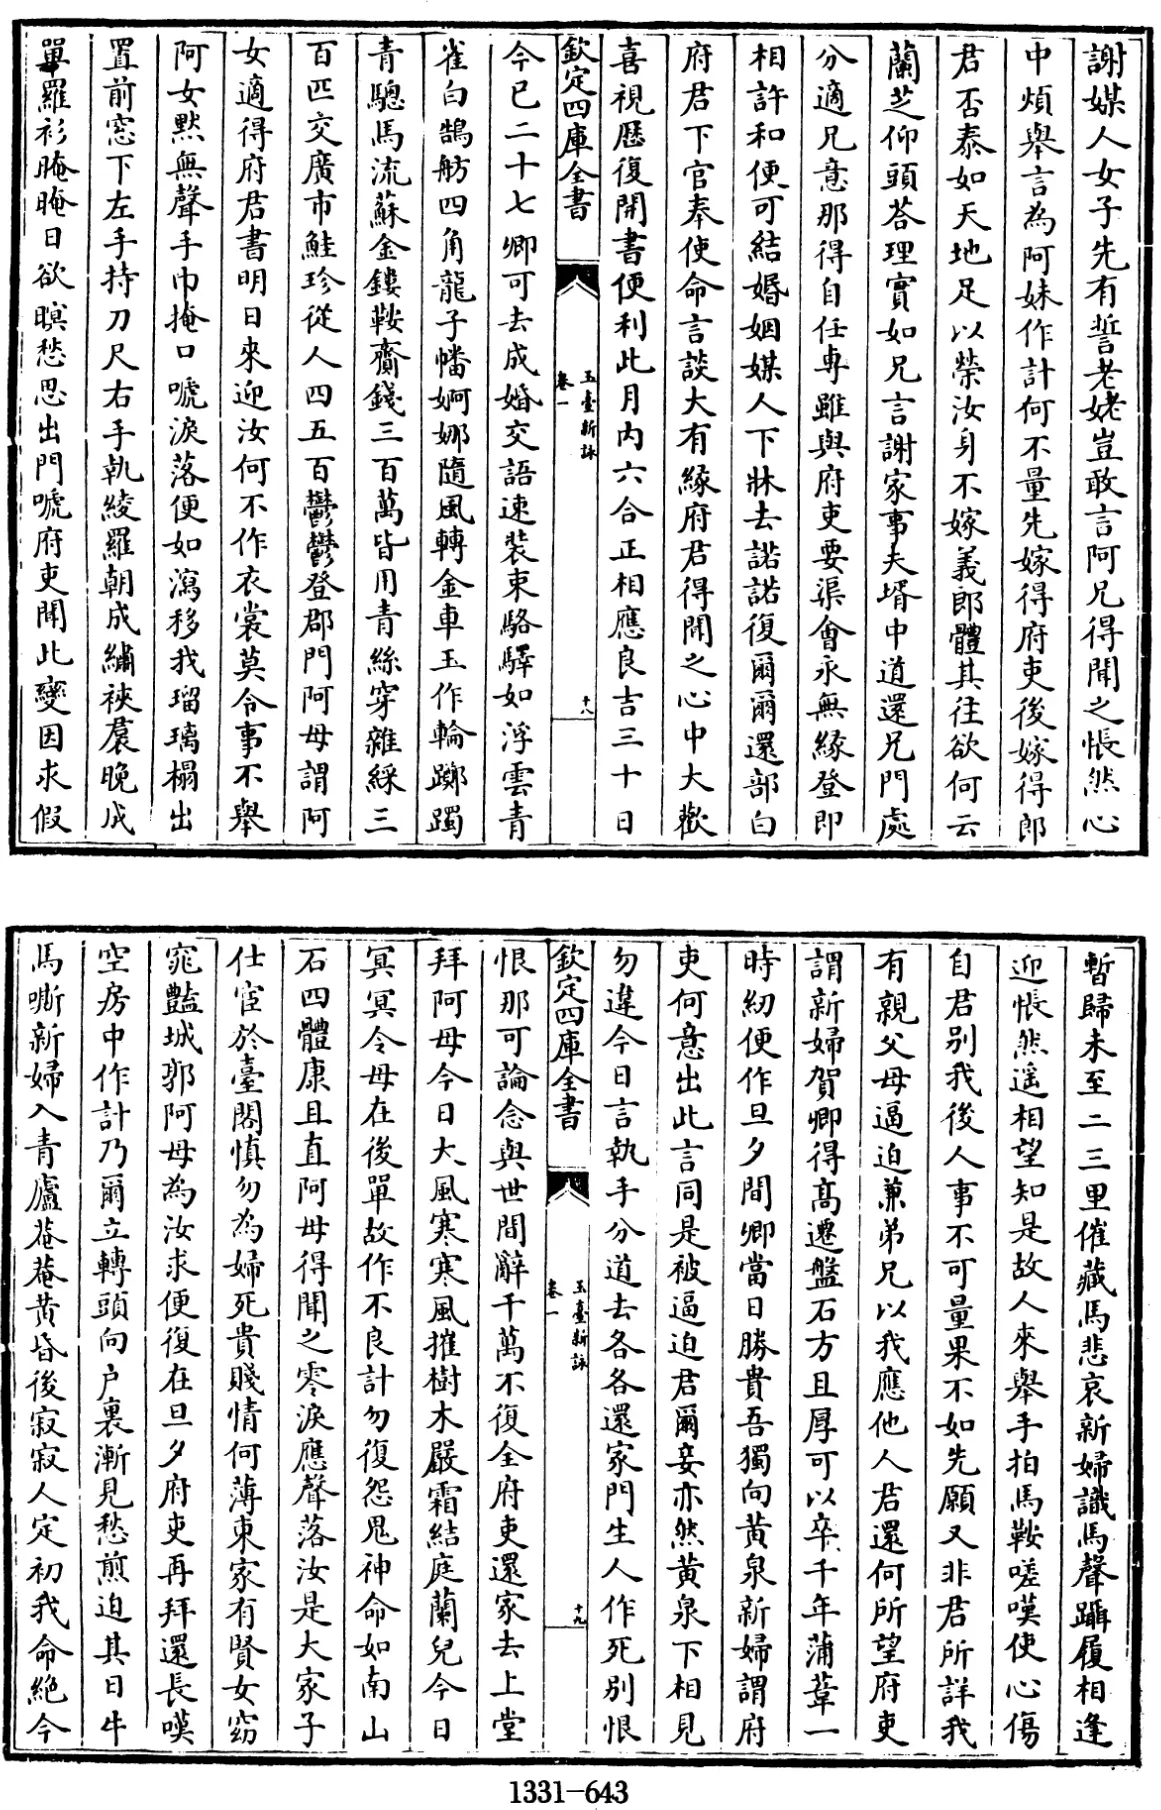 謝媒人女子先有誓老姥豈敢言阿兄得聞之悵然心
中煩舉言為阿妹作計何不量先嫁得府吏後嫁得郎
君否泰如天地足以榮汝身不嫁義郎體其往欲何云
蘭芝仰頭荅理實如兄言謝家事夫壻中道還兄門處
分適兄意那得自任専雖與府吏要渠會永無緣登即
相許和便可結婚姻媒人下牀去諾諾復爾爾還部白
府君下官奉使命言談大有緣府君得聞之心中大歡
喜視歷復開書便利此月内六合正相應良吉三十日
欽定四庫全書
玉臺新詠
卷一
十八
今已二十七卿可去成婚交語速裝束駱驛如浮雲青
雀白鵠舫四角龍子幡婀娜隨風轉金車玉作輪躑躅
青驄馬流蘇金鏤鞍齎錢三百萬皆用青絲穿雜綵三
百匹交廣市鮭珍從人四五百鬱鬱登郡門阿母謂阿
女適得府君書明日來迎汝何不作衣裳莫令事不舉
阿女黙無聲手巾掩口嗁淚落便如瀉移我瑠璃榻出
置前窓下左手持刀尺右手執綾羅朝成繡裌裠晩成
單羅衫晻晻日欲暝愁思出門嗁府吏聞此變因求假
暫歸未至二三里催藏馬悲哀新婦識馬聲躡履相逢
迎悵然遥相望知是故人來舉手拍馬鞍嗟嘆使心傷
自君别我後人事不可量果不如先願又非君所詳我
有親父母逼迫兼弟兄以我應他人君還何所望府吏
謂新婦賀卿得髙遷盤石方且厚可以卒千年蒲葦一
時紉便作旦夕間卿當日勝貴吾獨向黄泉新婦謂府
吏何意出此言同是被逼迫君爾妾亦然黄泉下相見
勿違今日言執手分道去各各還家門生人作死别恨
欽定四庫全書
玉臺新詠
卷一
十九
恨那可論念與世間辭千萬不復全府吏還家去上堂
拜阿母今日大風寒寒風摧樹木嚴霜結庭蘭兒今日
冥冥令母在後單故作不良計勿復怨鬼神命如南山
石四體康且直阿母得聞之零淚應聲落汝是大家子
仕宦於臺閣慎勿為婦死貴賤情何薄東家有賢女窈
窕豔城郭阿母為汝求便復在旦夕府吏再拜還長嘆
空房中作計乃爾立轉頭向户裏漸見愁煎迫其日牛
馬嘶新婦入青廬菴菴黄昏後寂寂人定初我命絶今
1331-643